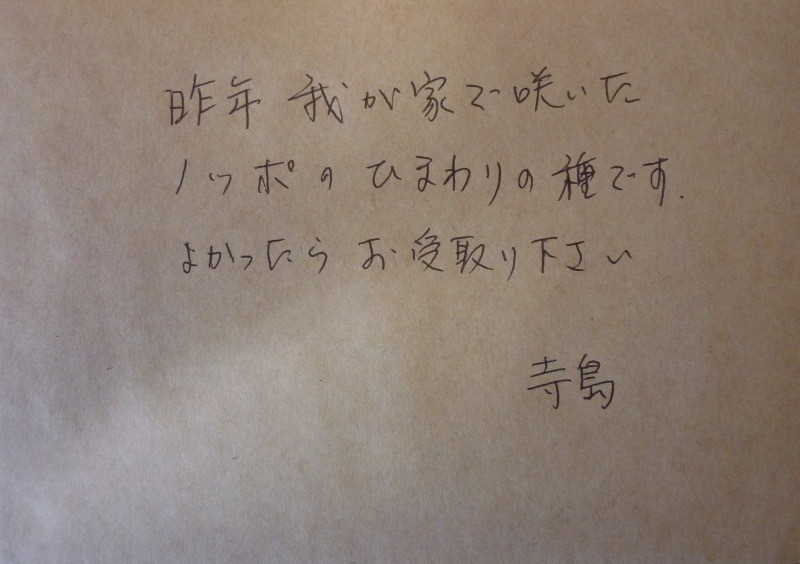 昨年 我が家で咲いた
ノッポの ひまわりの種です.
よかったら お受取り下さい
寺島